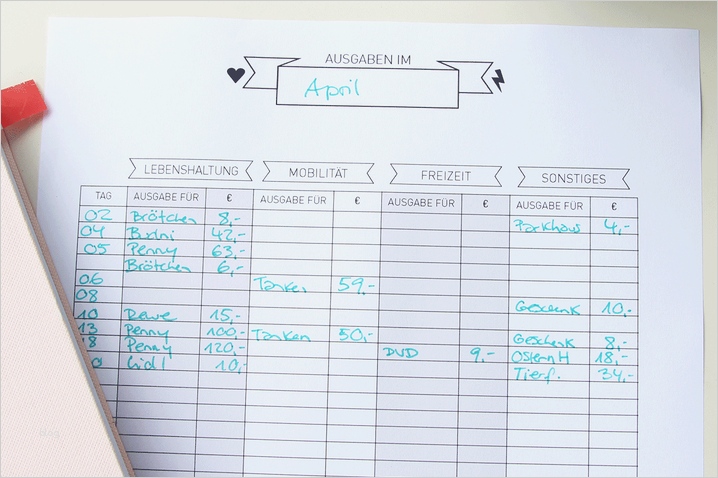 AUSGABEN IM
April
LEBENSHALTUNG MOBILITÄT FREIZEIT SONSTIGES
TAG AUSGABE FÜR € AUSGABE FÜR € AUSGABE FÜR € AUSGABE FÜR €
02 Brötchen 8,- Parkhaus 4,-
04 Budni 42,-
05 Penny 63,-
Brötchen 6,-
06 Tanken 59,-
08 Geschenk 10,-
10 Rewe 15,-
13 Penny 100,- Tanken 50,- Geschenk 8,-
18 Penny 120,- DVD 9,- Ostern H 18,-
Lidl 10,- Tierf. 34,-